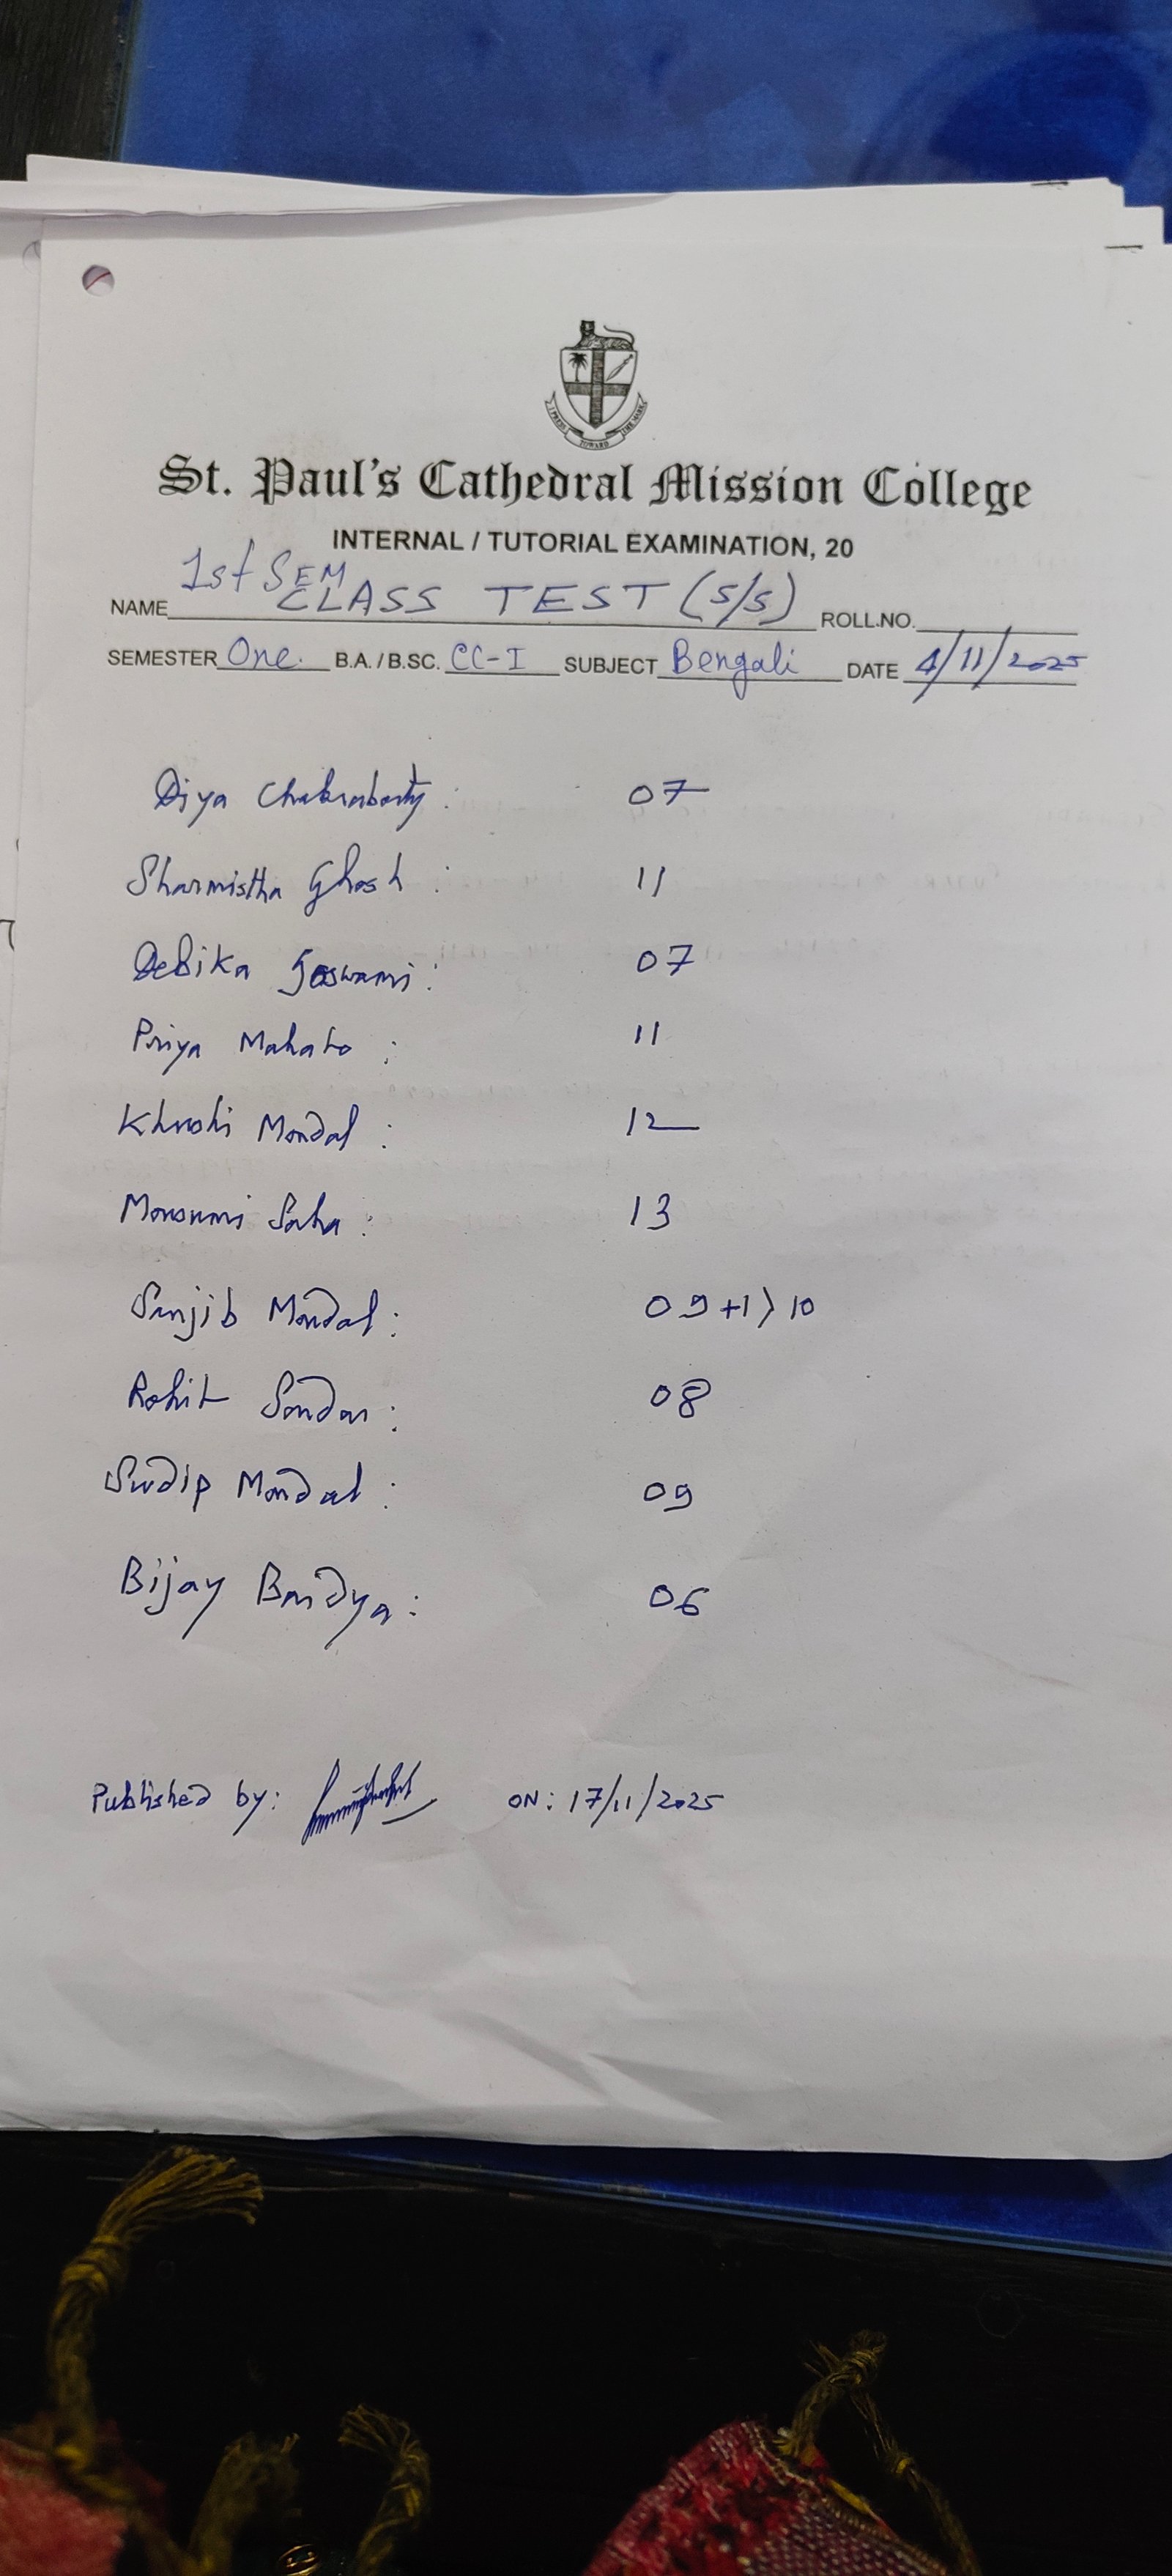 PRESS TOWARD THE MARK
St. Paul's Cathedral Mission College
INTERNAL / TUTORIAL EXAMINATION, 20
1st SEM
NAME CLASS TEST (S/S) ROLL.NO.
SEMESTER One. B.A. / B.SC. CC-I SUBJECT Bengali DATE 4/11/2025
Diya Chakraborty : 07
Sharmistha Ghosh : 11
Debika Goswami : 07
Priya Mahato : 11
Khushi Mondal : 12
Mousumi Saha : 13
Sanjib Mondal : 09 +1 > 10
Rohit Sardar : 08
Sudip Mondal : 09
Bijay Baidya : 06
Published by: ON: 17/11/2025